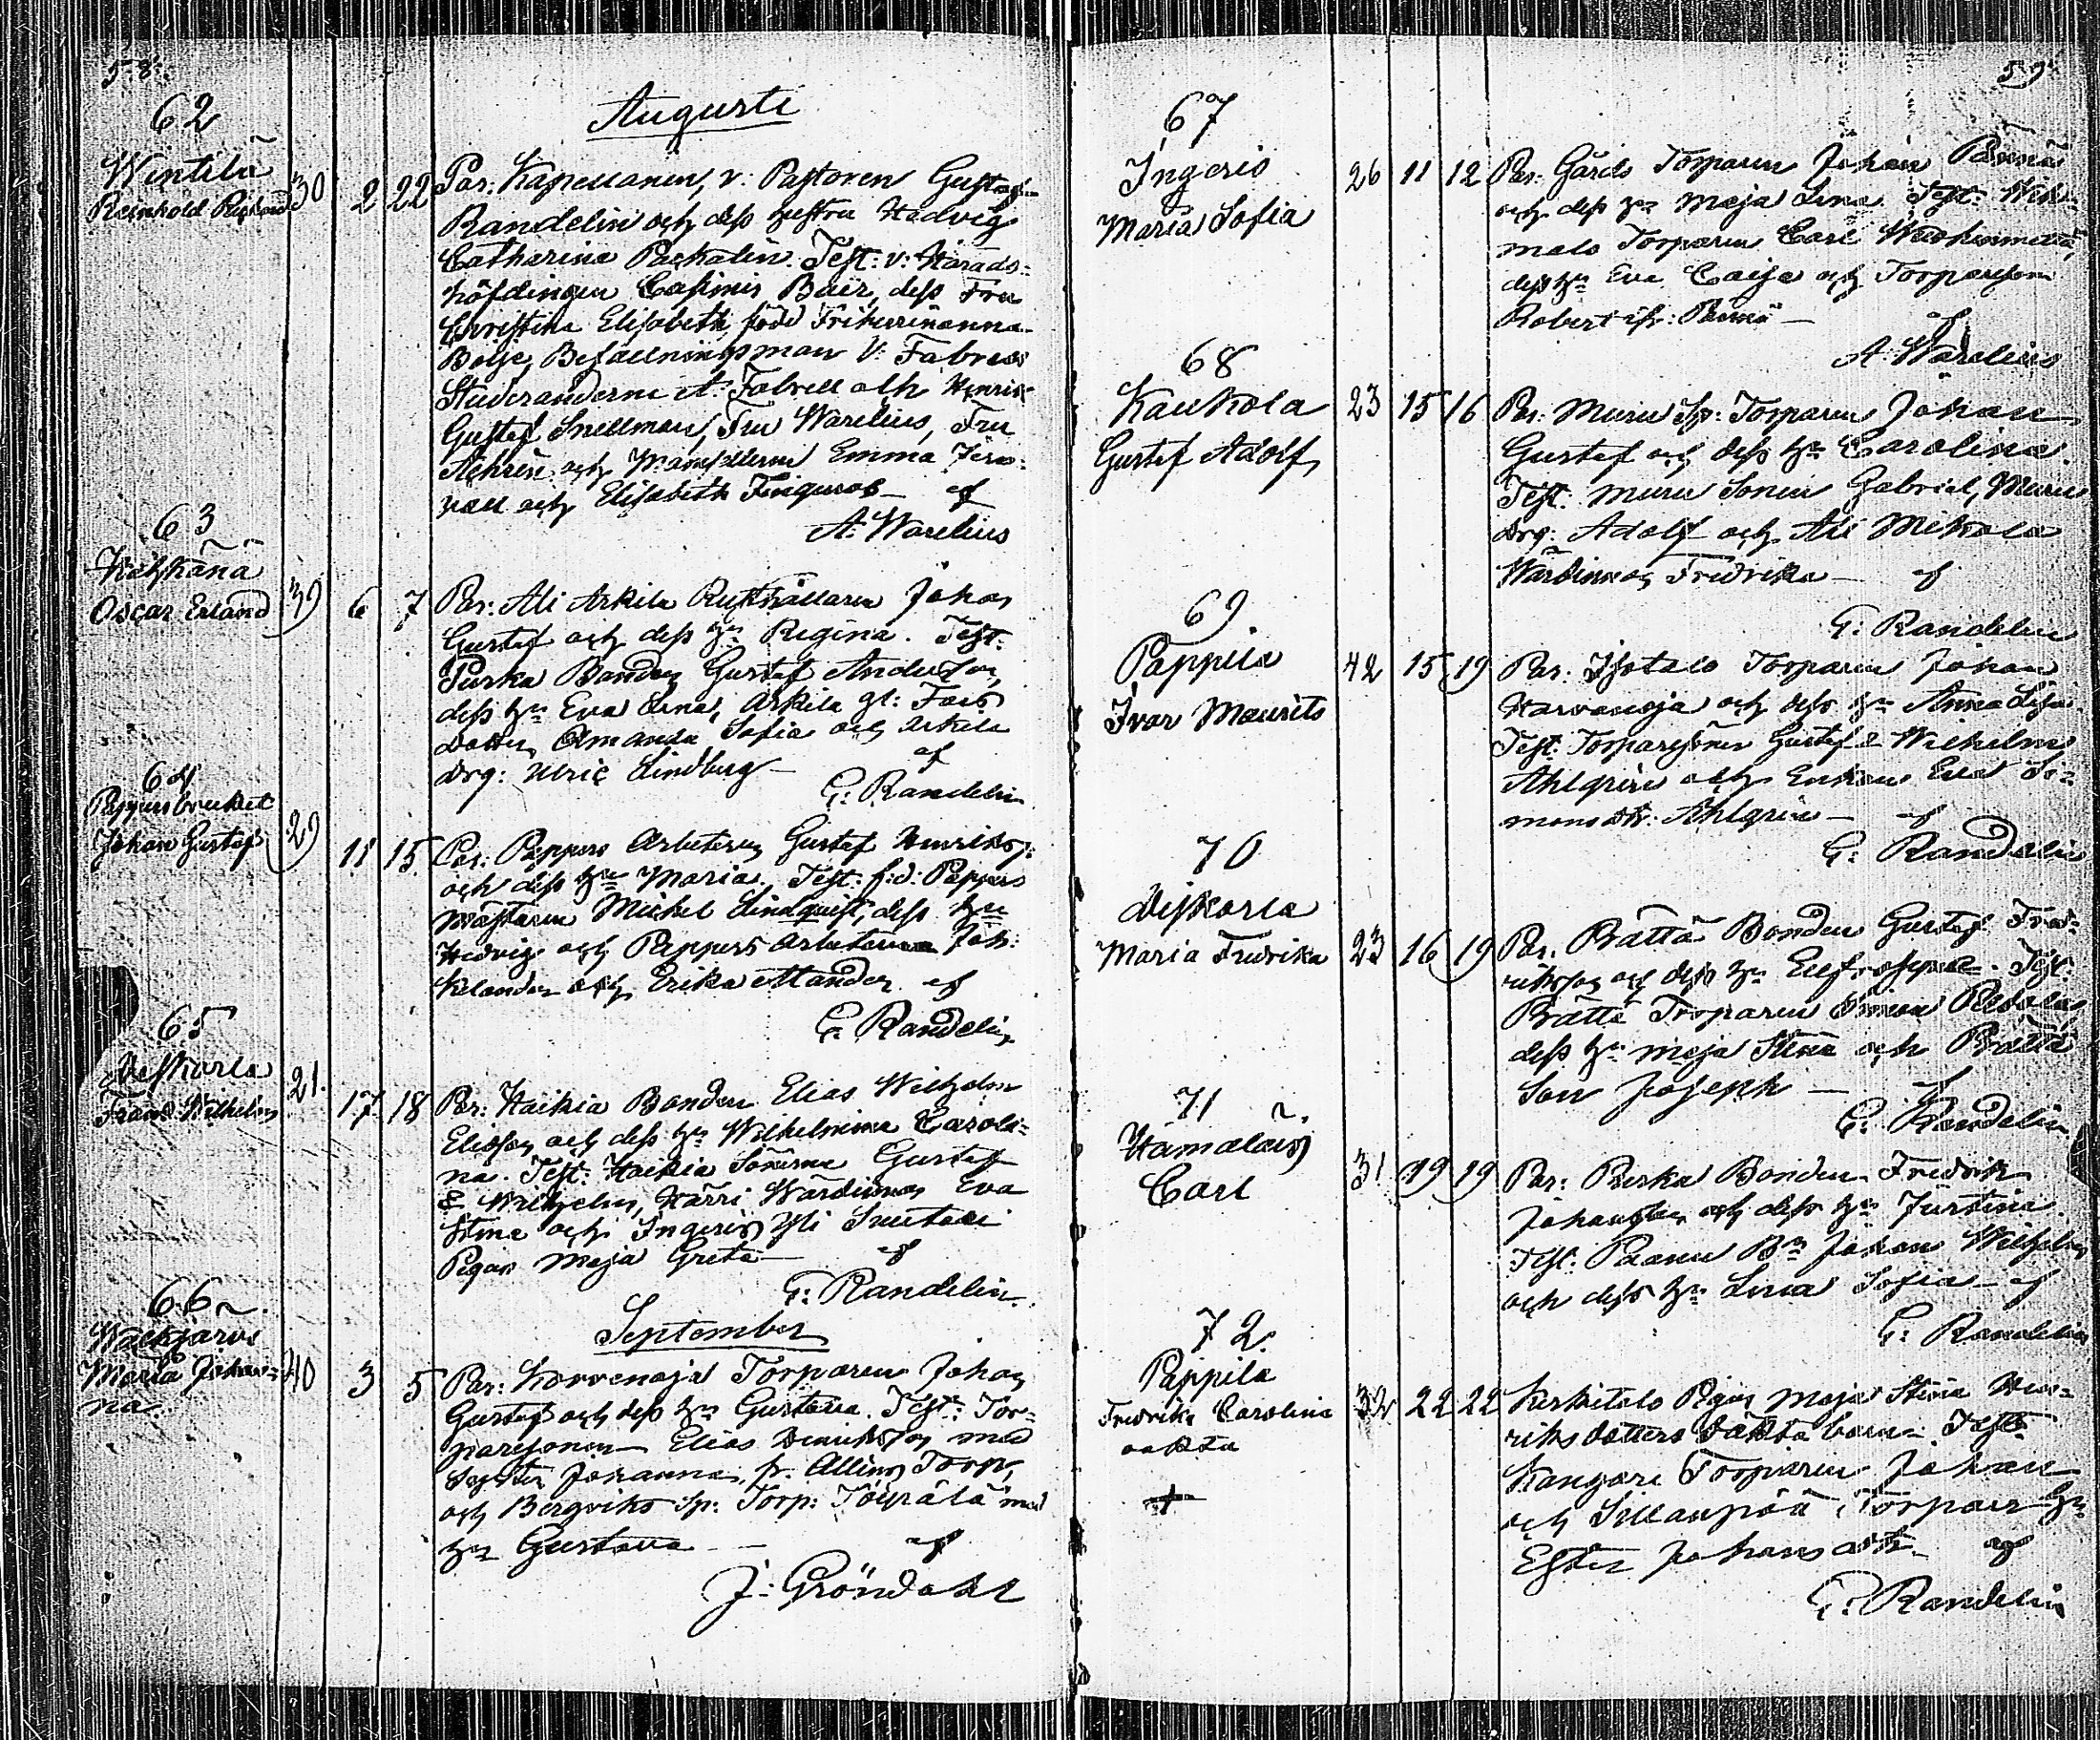 58.
Augusti
62
Wintila
Reinhold Richard 30 2 22
Par: Kapellanen, v: Pastoren Gustaf
Randelin och dess hustru Hedvig
Catharina Pachalin. Test: v: Härads-
höfdingen Casimir Bäir, dess Fru
Christina Elisabeth, född Friherrinna
Boije, Befallningsman V: Fabren
Studeranderne A: Fabrell och Henrik
Gustaf Snellman, Fru Warelius, Fru
och Mamsellerna Emma
och Elisabeth af
A: Warelius
63
Kötkänä
Oscar Erland 39 6 7
Par: Ali Arkila Rusthållaren Johan
Gustaf och dess hu Regina. Test:
Purka Bonden Gustaf Andersson,
dess hu Eva Lena, Arkila gl:
dotter Amanda Sofia och Arkila
drg: Ulric Lindberg af
G: Randelin
64
Pappersbruket
Johan Gustaf 29 11 15
Par: Pappers Arbetaren Gustaf Henrikss:
och dess hu Maria. Test: f:d: Pappers
Mästaren Michel Lindquist, dess hu
Hedvig och Pappers Arbetaren Joh:
Kelander och Erika Mander af
G: Randelin
65
Weskarla
Frans Wilhelm 21. 17 18
Par: Haikia Bonden Elias Wilhelm
Eliasson och dess hu Wilhelmina Caroli-
na. Test: Haikia Sönerne Gustaf
& Wilhelm, Härri Wärdinnan Eva
Stina och Ingeris Yli
Pigan Maja Greta af
G: Randelin.
September
66
Walkjärvi
Maria Johan- 40 3 5
na.
Par: Korvenoja Torparen Johan
Gustaf och dess hu Gustava. Test: Tor-
paresonen Elias Henriksson med
Syster Johanna, fr. Torp,
och Bergviks Sp: Torp: med
hu Gustava af
J: Gröndahl
59.
67
Ingeris
Maria Sofia 26 11 12
Par: Gårds Torparen Johan Pännä
och dess hu Maja Lena. Test:
malo Torparen Carl
dess hu Eva Caisa och Torparesonen
Robert ifr: Pännä af
A: Warelius
68
Kaukola 23 15 16
Gustaf Adolf
Par: Muru Sp: Torparen Johan
Gustaf och dess hu Carolina.
Test: Muru Sonen Gabriel, Muru
drg: Adolf och Ali Mikola
Wärdinnan Fredrika af
G: Randelin
69.
Pappila 42 15 19
Ivar Maurits
Par: Isotalo Torparen Johan
Harvanoja och dess hu Anna Lisa.
Test: Torparesöner Gustaf & Wilhelm
Ahlgren och Enkan Eva Si-
mons dtr: Ahlgrén af
G: Randelin
70
Weskarla
Maria Fredrika 23 16 19
Par: Prättä Bonden Gustaf Fred-
riksson och dess hu Eufrosyna. Test:
Prättä Torparen Simon
dess hu Maja Stina och Prättä
Son Joseph af
G: Randelin
71
Hämäläis
Carl 31 19 19
Par: Purka Bonden Fredrik
Johansson och dess hu Justina.
Test: Paanu Bn Johan Wilhelm
och dess hu Lena Sofia af
G: Randelin
72.
Pappila
Fredrika Carolina 32 22 22
oäkta
+
Kerkitalo Pigan Maja Stina Hen-
riks dotters oäkta barn. Test:
Kangari Torparen Johan
och Sillanpää Torpare hu
Ester Johans dtr. af
G: Randelin